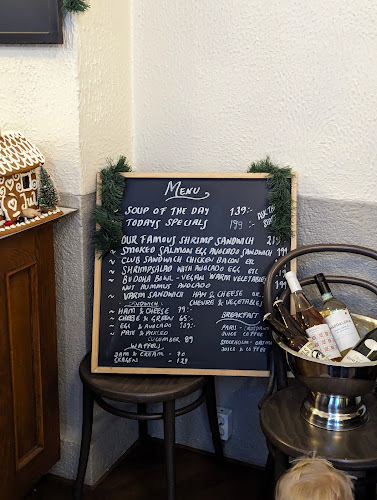 MENU
SOUP OF THE DAY 139:-
TODAYS SPECIALS 199:-
OUR FAMOUS SHRIMP SANDWICH 215
~ SMOKED SALMON EGG AVOCADO SANDWICH 199
~ CLUB SANDWICH CHICKEN BACON
~ SHRIMPSALAD WITH AVOCADO EGG ETC
~ BUDDHA BOWL - VEGAN WARM VEGETABLES
NUT HUMMUS AVOCADO
~ WARM SANDWICH HAM & CHEESE OR
CHEVRÉ & VEGETABLES
SANDWICH
~ HAM & CHEESE 79:-
~ CHEESE & GREEN 65:-
~ EGG & AVOCADO 109:-
~ PATE & PICKLED
CUCUMBER 89
WAFFELS
JAM & CREAM - 70
SKAGEN - 129
BREAKFAST
PARIS -
JUICE & COFFEE
STOCKHOLM -
JUICE & CO
Jul